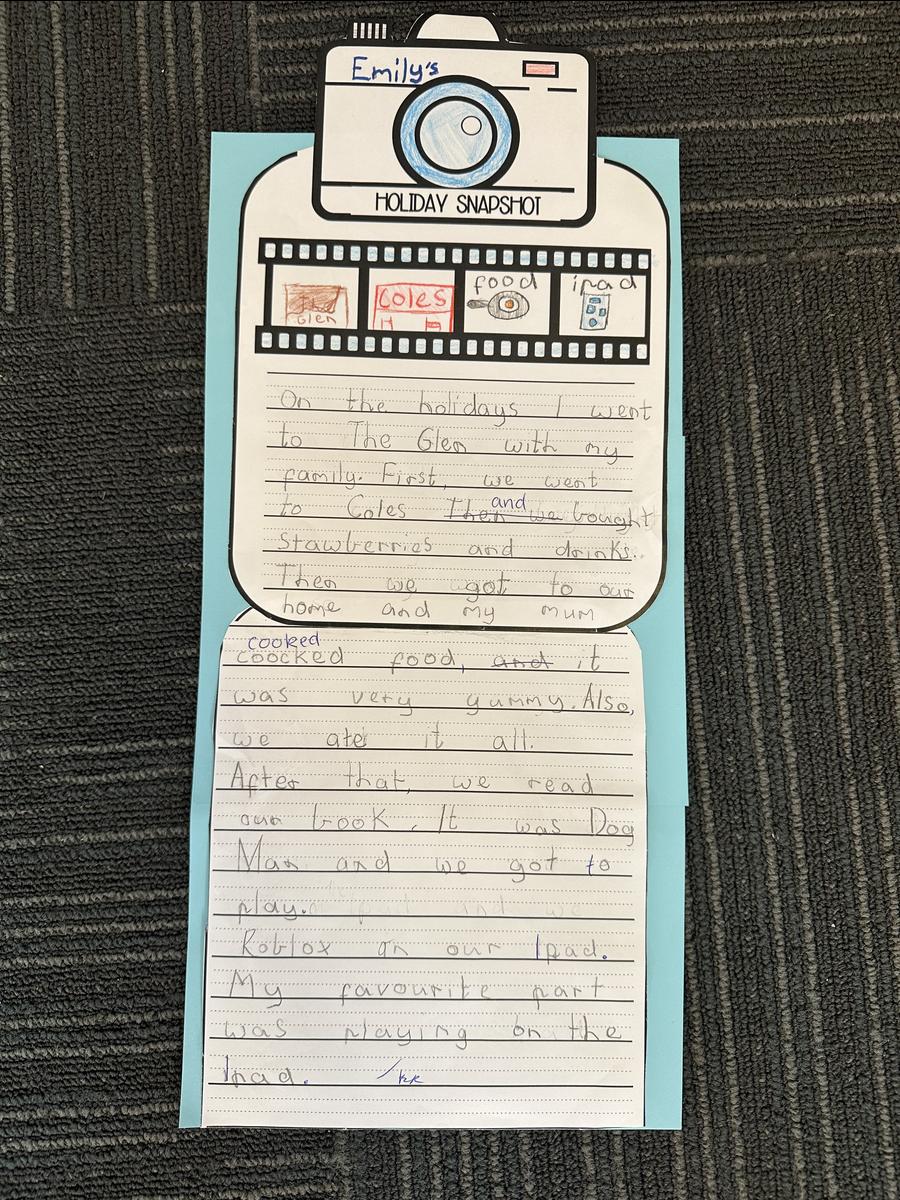 Emily's
HOLIDAY SNAPSHOT
Glen
Coles
food
ipad
On the holidays I went
to The Glen with my
family. First, we went
to Coles Then and we bought
stawberries and drinks.
Then we got to our
home and my mum
cooked
coocked food, and it
was very yummy. Also,
we ate it all.
After that, we read
our book. It was Dog
Man and we got to
play.
Roblox on our Ipad.
My favourite part
was playing on the
Ipad.